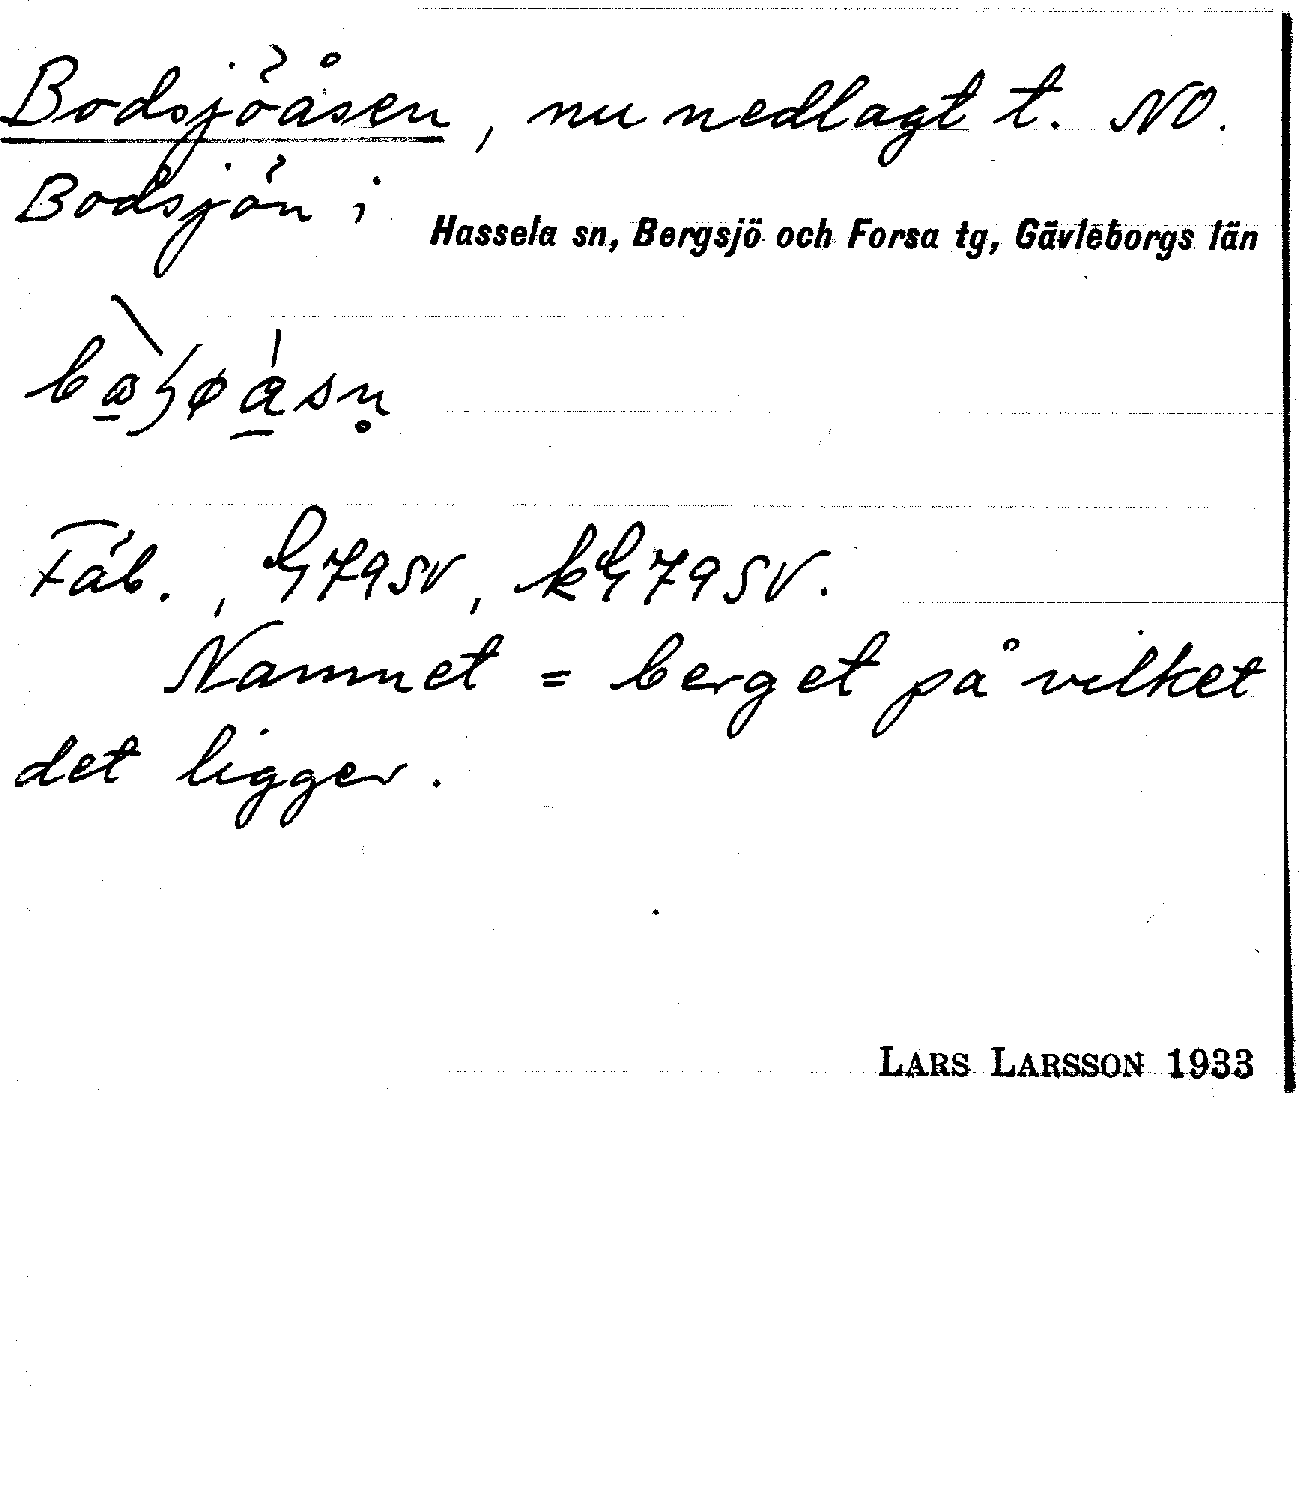 Bodsjöåsen, nu nedlagt t. NO.
Bodsjön i Hassela sn, Bergsjö och Forsa tg, Gävleborgs län
Fäb., G79SV, kG79SV.
Namnet = berget på vilket
det ligger.
LARS LARSSON 1933